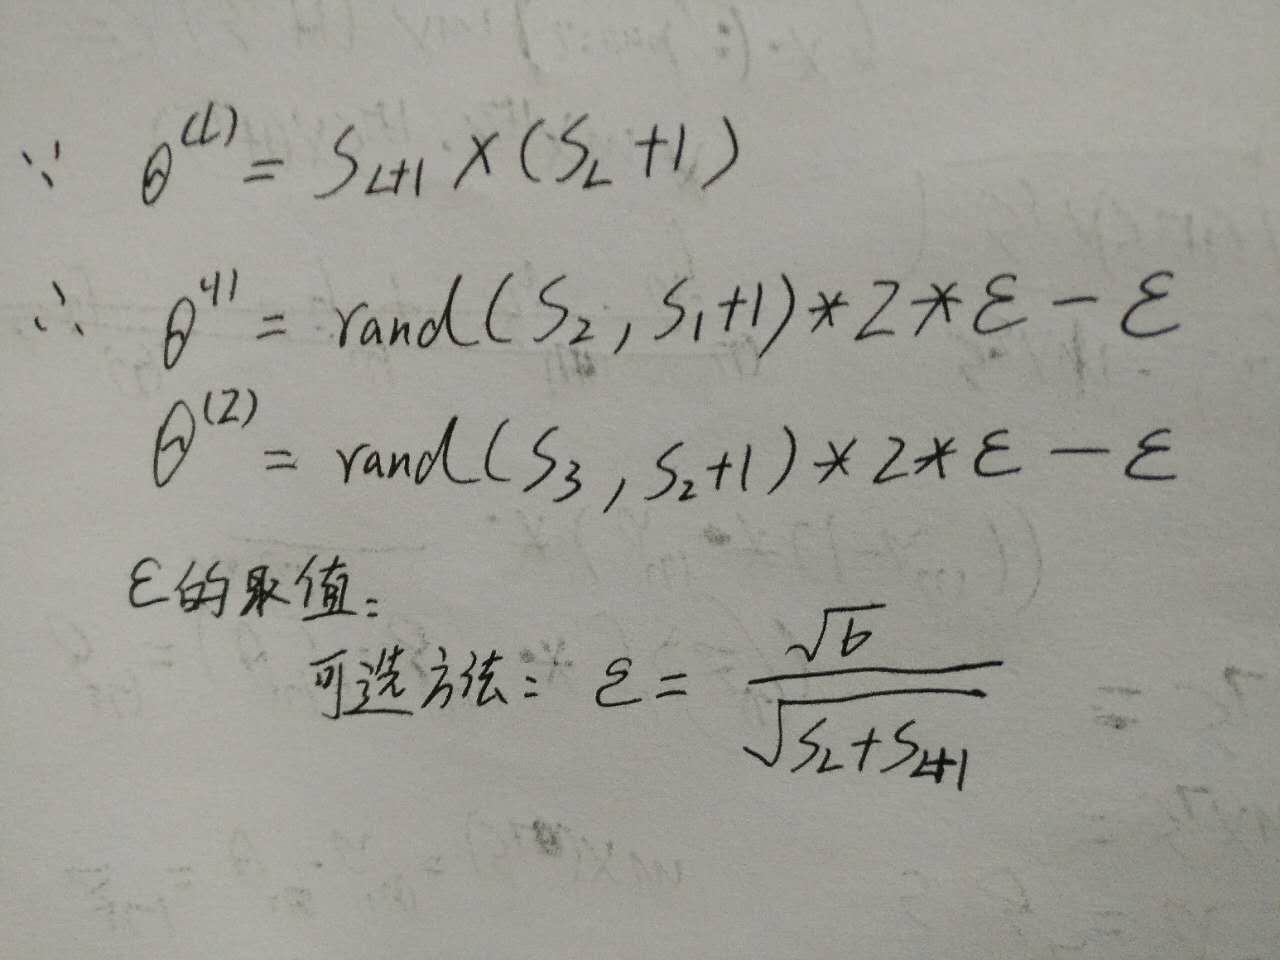 ∵ θ^(L) = S_{L+1} × (S_L + 1)
∴ θ^(1) = rand(S_2, S_1+1) * 2 * ε − ε
θ^(2) = rand(S_3, S_2+1) * 2 * ε − ε
ε的取值:
可选方法: ε = √6 / √(S_L + S_{L+1})